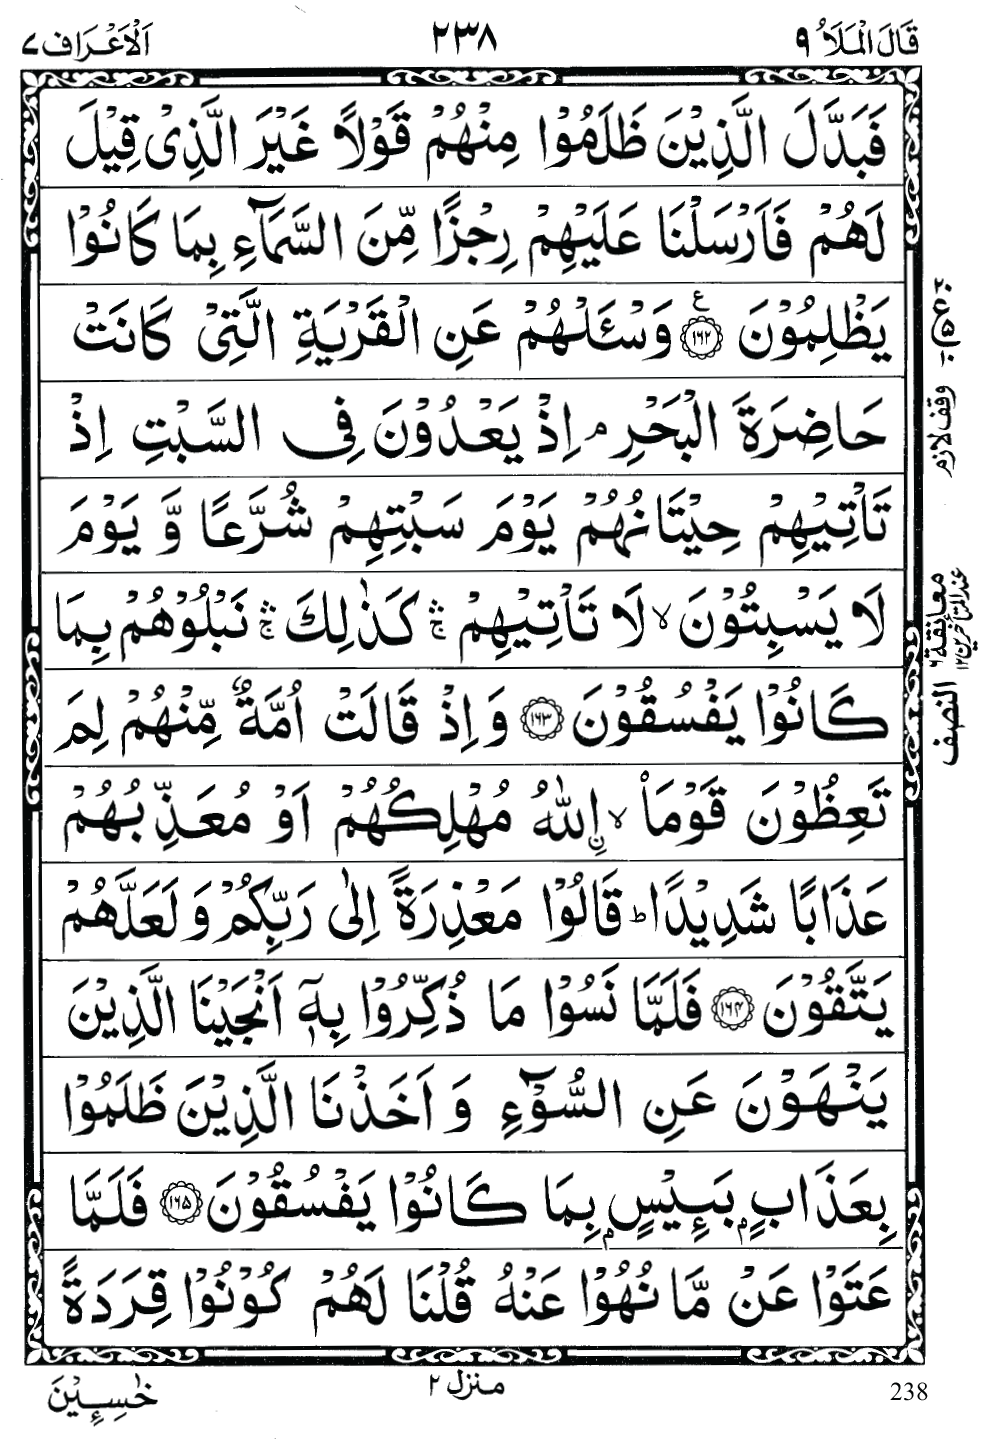 قَالَ الْمَلَاُ ۹ ۲۳۸ اَلْاَعْرَاف ۷
فَبَدَّلَ الَّذِیْنَ ظَلَمُوْا مِنْهُمْ قَوْلًا غَیْرَ الَّذِیْ قِیْلَ
لَهُمْ فَاَرْسَلْنَا عَلَیْهِمْ رِجْزًا مِّنَ السَّمَآءِ بِمَا كَانُوْا
یَظْلِمُوْنَ ۧ﴿۱۶۲﴾ وَسْـَٔلْهُمْ عَنِ الْقَرْیَةِ الَّتِیْ كَانَتْ
حَاضِرَةَ الْبَحْرِ ۘ اِذْ یَعْدُوْنَ فِی السَّبْتِ اِذْ
تَاْتِیْهِمْ حِیْتَانُهُمْ یَوْمَ سَبْتِهِمْ شُرَّعًا وَّ یَوْمَ
لَا یَسْبِتُوْنَ ۙ لَا تَاْتِیْهِمْ ۛۚ كَذٰلِكَ ۛۚ نَبْلُوْهُمْ بِمَا
كَانُوْا یَفْسُقُوْنَ ﴿۱۶۳﴾ وَاِذْ قَالَتْ اُمَّةٌ مِّنْهُمْ لِمَ
تَعِظُوْنَ قَوْمَا ۙ نِ۟اللّٰهُ مُهْلِكُهُمْ اَوْ مُعَذِّبُهُمْ
عَذَابًا شَدِیْدًا ؕ قَالُوْا مَعْذِرَةً اِلٰی رَبِّكُمْ وَ لَعَلَّهُمْ
یَتَّقُوْنَ ﴿۱۶۴﴾ فَلَمَّا نَسُوْا مَا ذُكِّرُوْا بِهٖۤ اَنْجَیْنَا الَّذِیْنَ
یَنْهَوْنَ عَنِ السُّوْٓءِ وَ اَخَذْنَا الَّذِیْنَ ظَلَمُوْا
بِعَذَابٍۭ بَىِٕیْسٍۭ بِمَا كَانُوْا یَفْسُقُوْنَ ﴿۱۶۵﴾ فَلَمَّا
عَتَوْا عَنْ مَّا نُهُوْا عَنْهُ قُلْنَا لَهُمْ كُوْنُوْا قِرَدَةً
خٰسِـِٕیْنَ
منزل ۲
238
وقف لازم
معانقة ۶
عند المتاخرین ۱۲
النصف